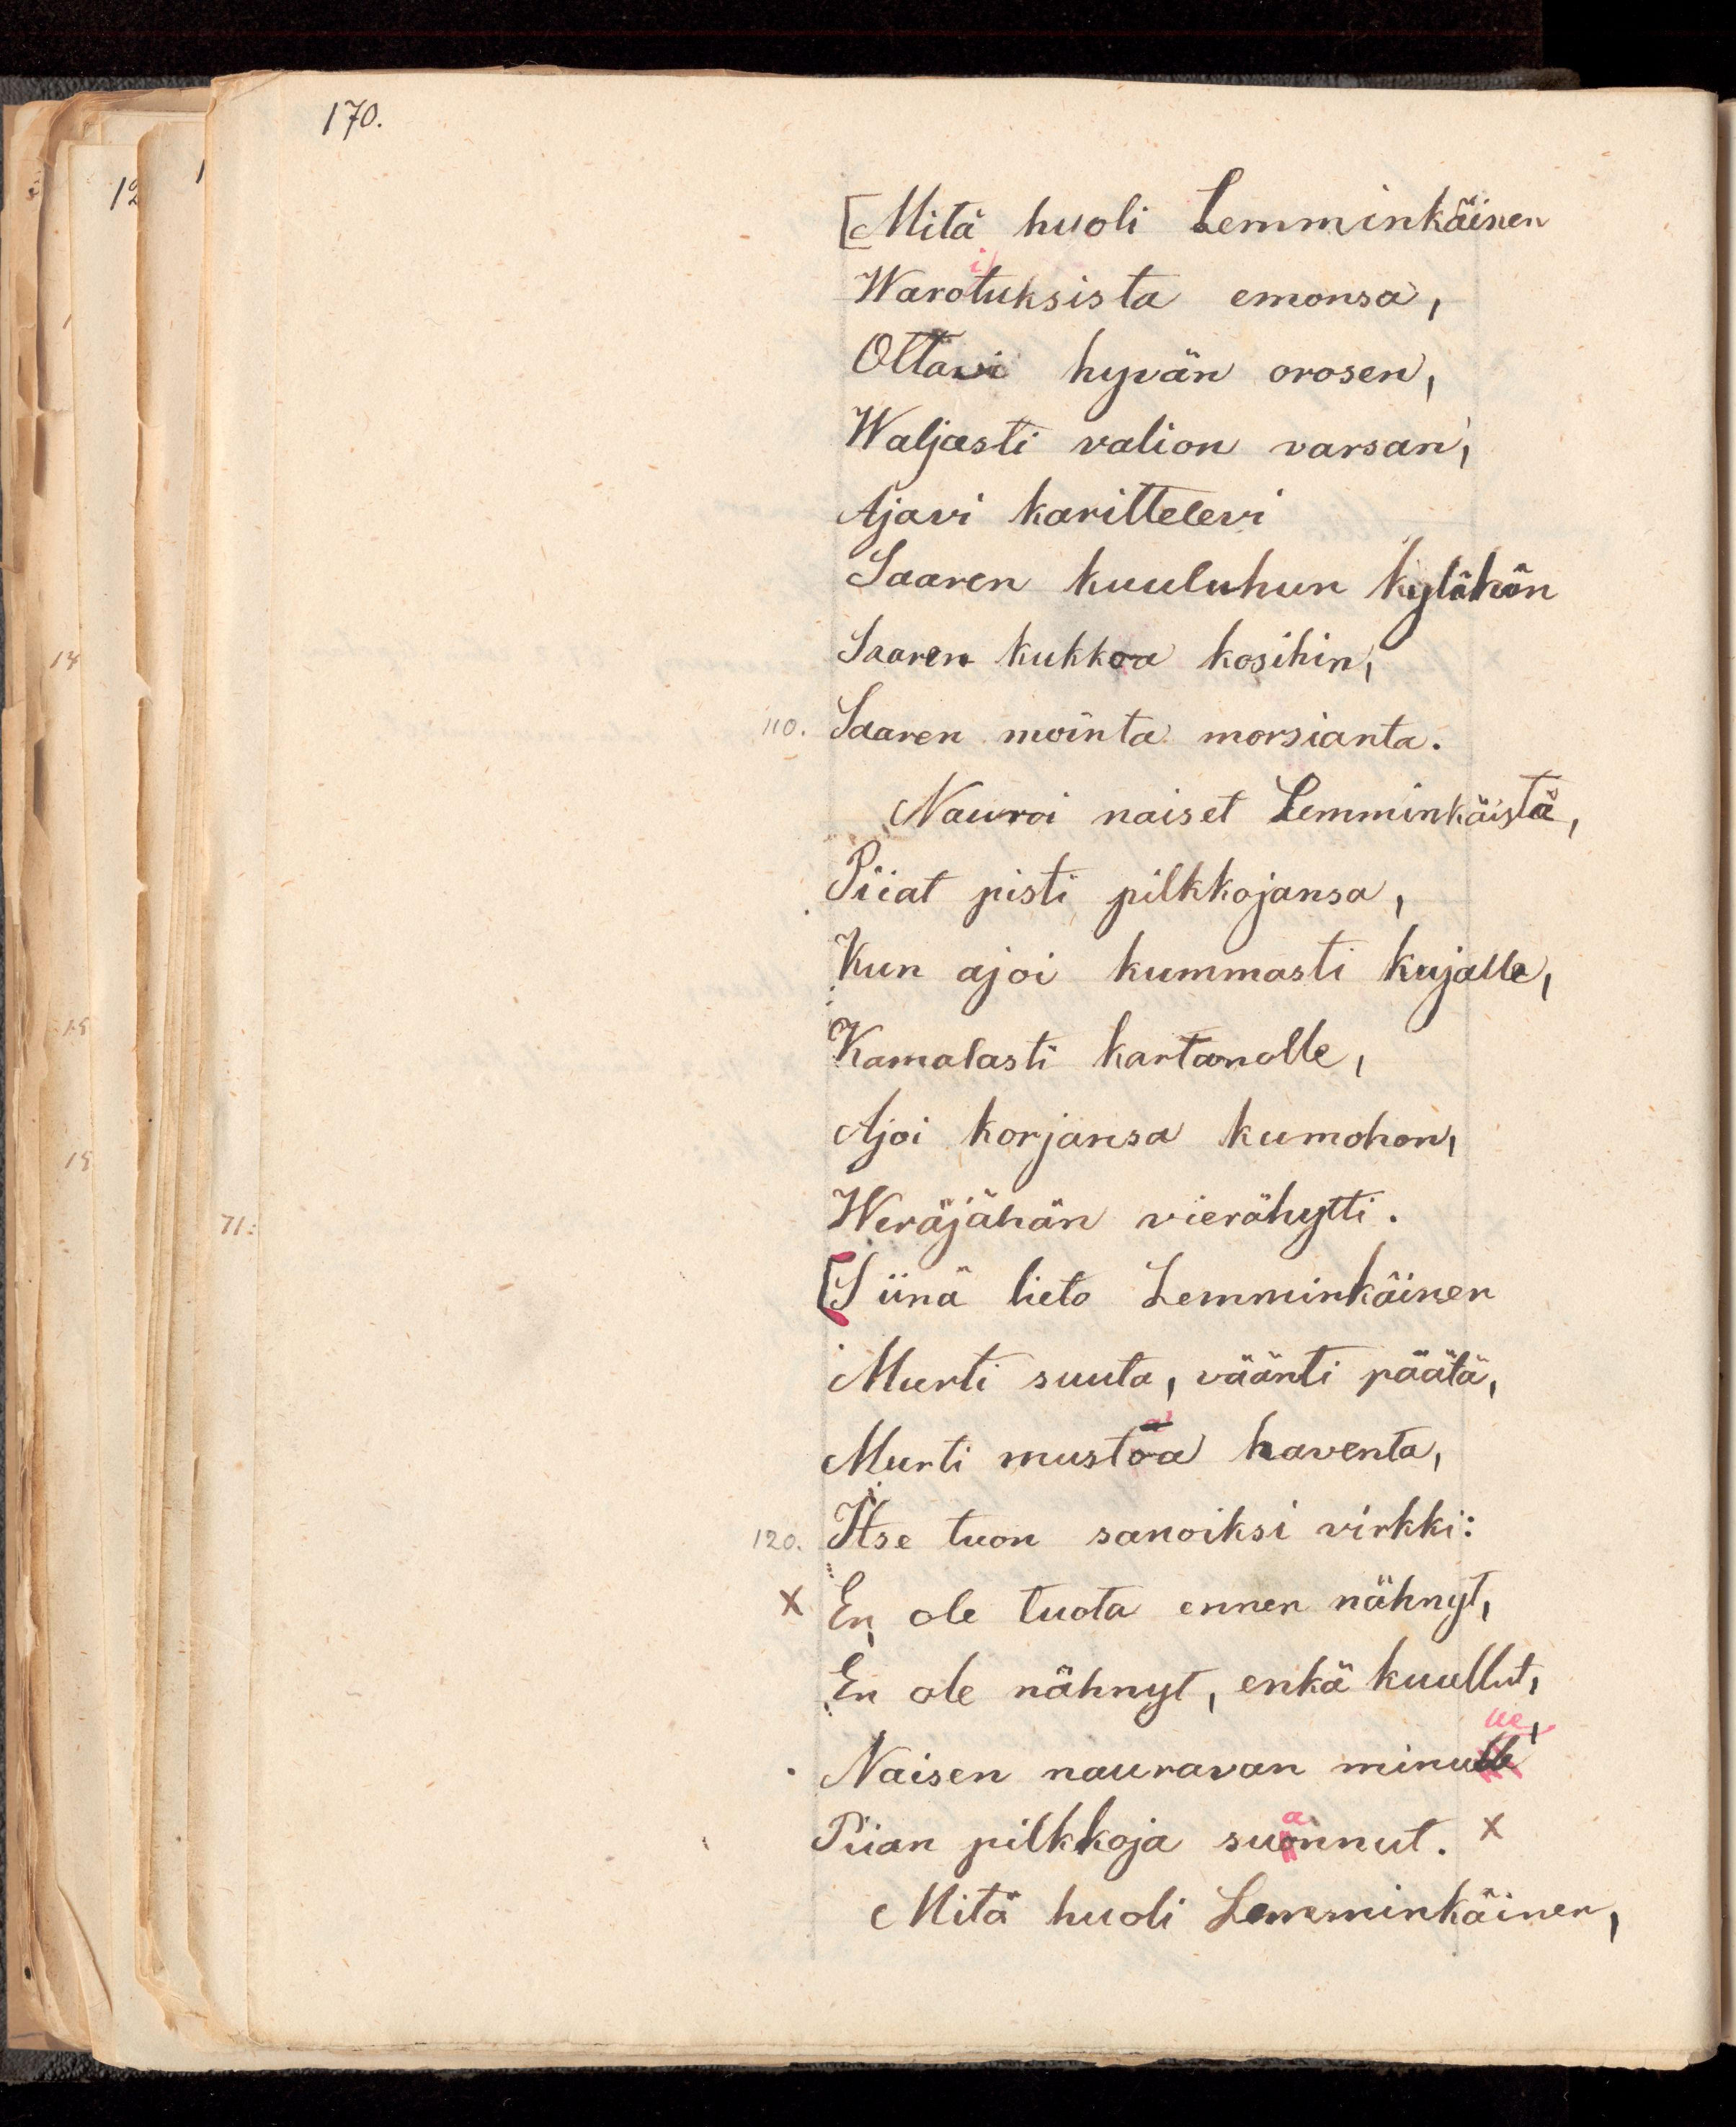 170.
[Mitä huoli Lemminkäinen
i
Warotuksista emonsa,
Ottavi hyvän orosen,
Waljasti valion varsan,
Ajavi karittelevi
Saaren kuuluhun kylähän
Saaren kukkoa kosihin,
110. Saaren mointa morsianta.
Nauroi naiset Lemminkäistä,
Piiat pisti pilkkojansa,
Kun ajoi kummasti kujalle,
Kamalasti kartanolle,
Ajoi korjansa kumohon,
Weräjähän vierähytti.
[Siinä lieto Lemminkäinen
Murti suuta, väänti päätä,
Murti mustoa haventa,
120. Itse tuon sanoiksi virkki:
X En ole tuota ennen nähnyt,
En ole nähnyt, enkä kuullut,
ue,
Naisen nauravan minulle
a
Piian pilkkoja suonnut. X
Mitä huoli Lemminkäinen,
12
14
15
15
71: